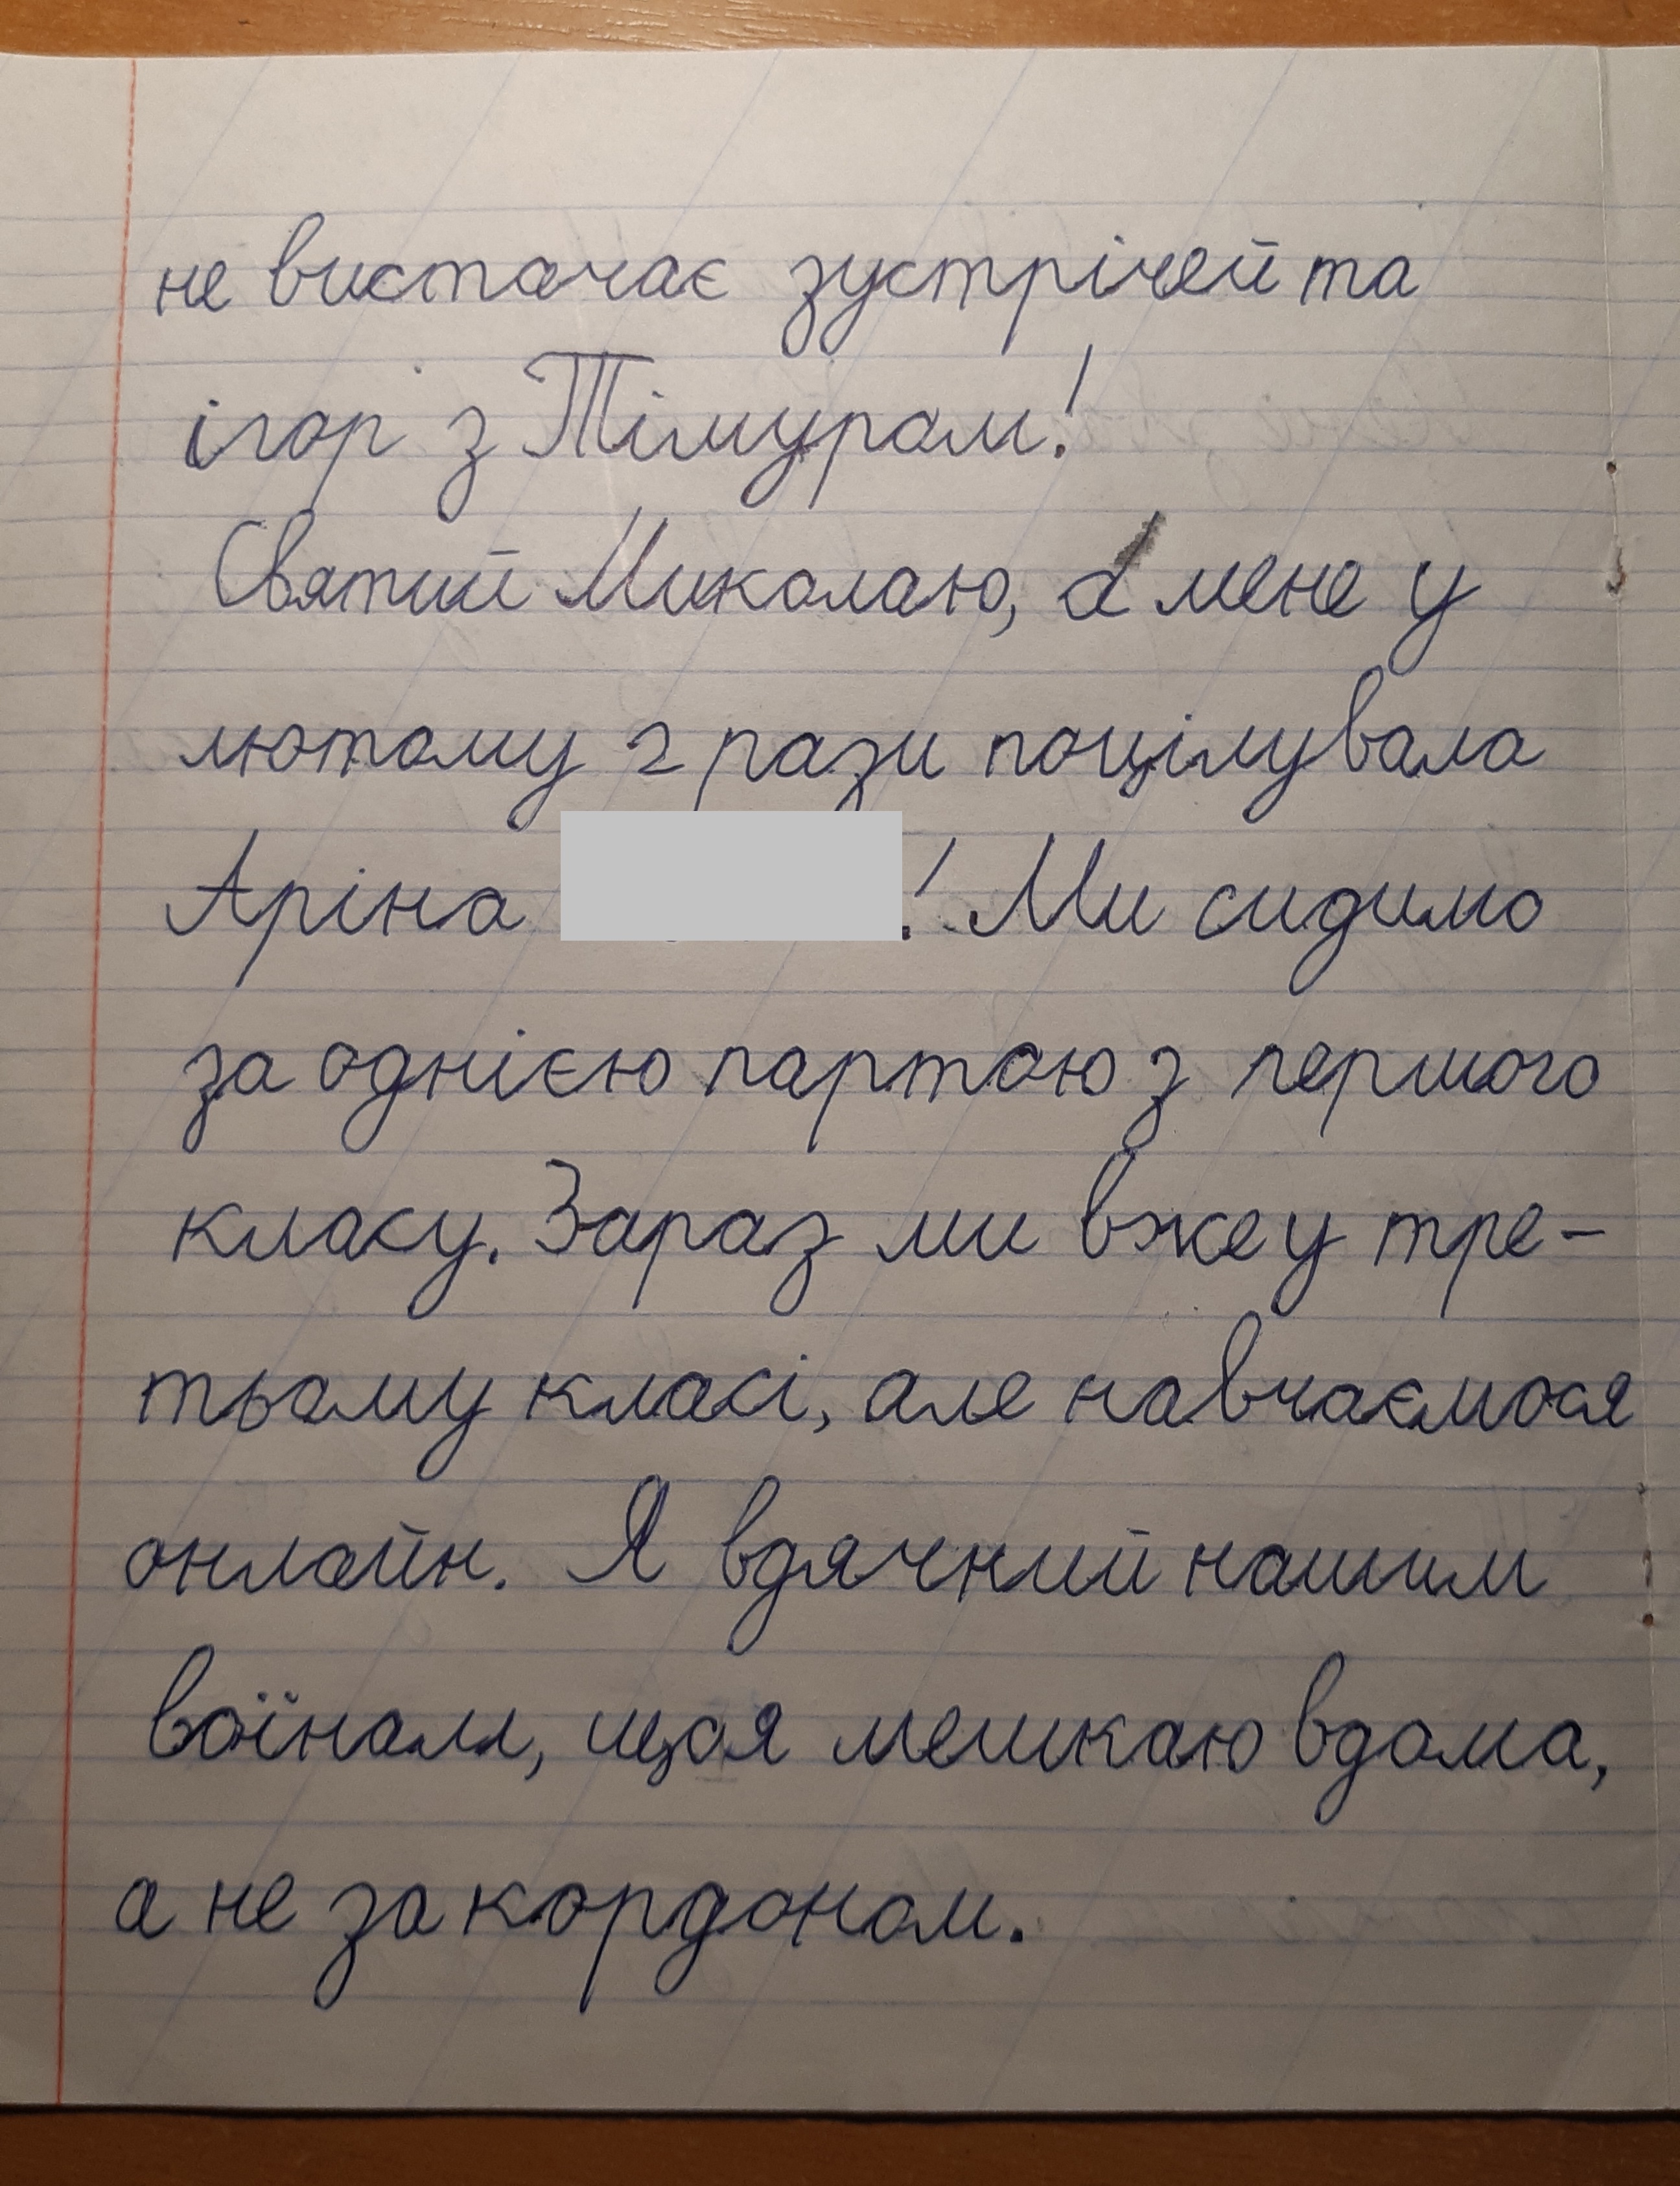 не вистачає зустрічей та
ігор з Тімуром!
Святий Миколаю, а мене у
лютому 2 рази поцілувала
Аріна ! Ми сидимо
за однією партою з першого
класу. Зараз ми вже у тре-
тьому класі, але навчаємося
онлайн. Я вдячний нашим
воїнам, що я мешкаю вдома,
а не за кордоном.